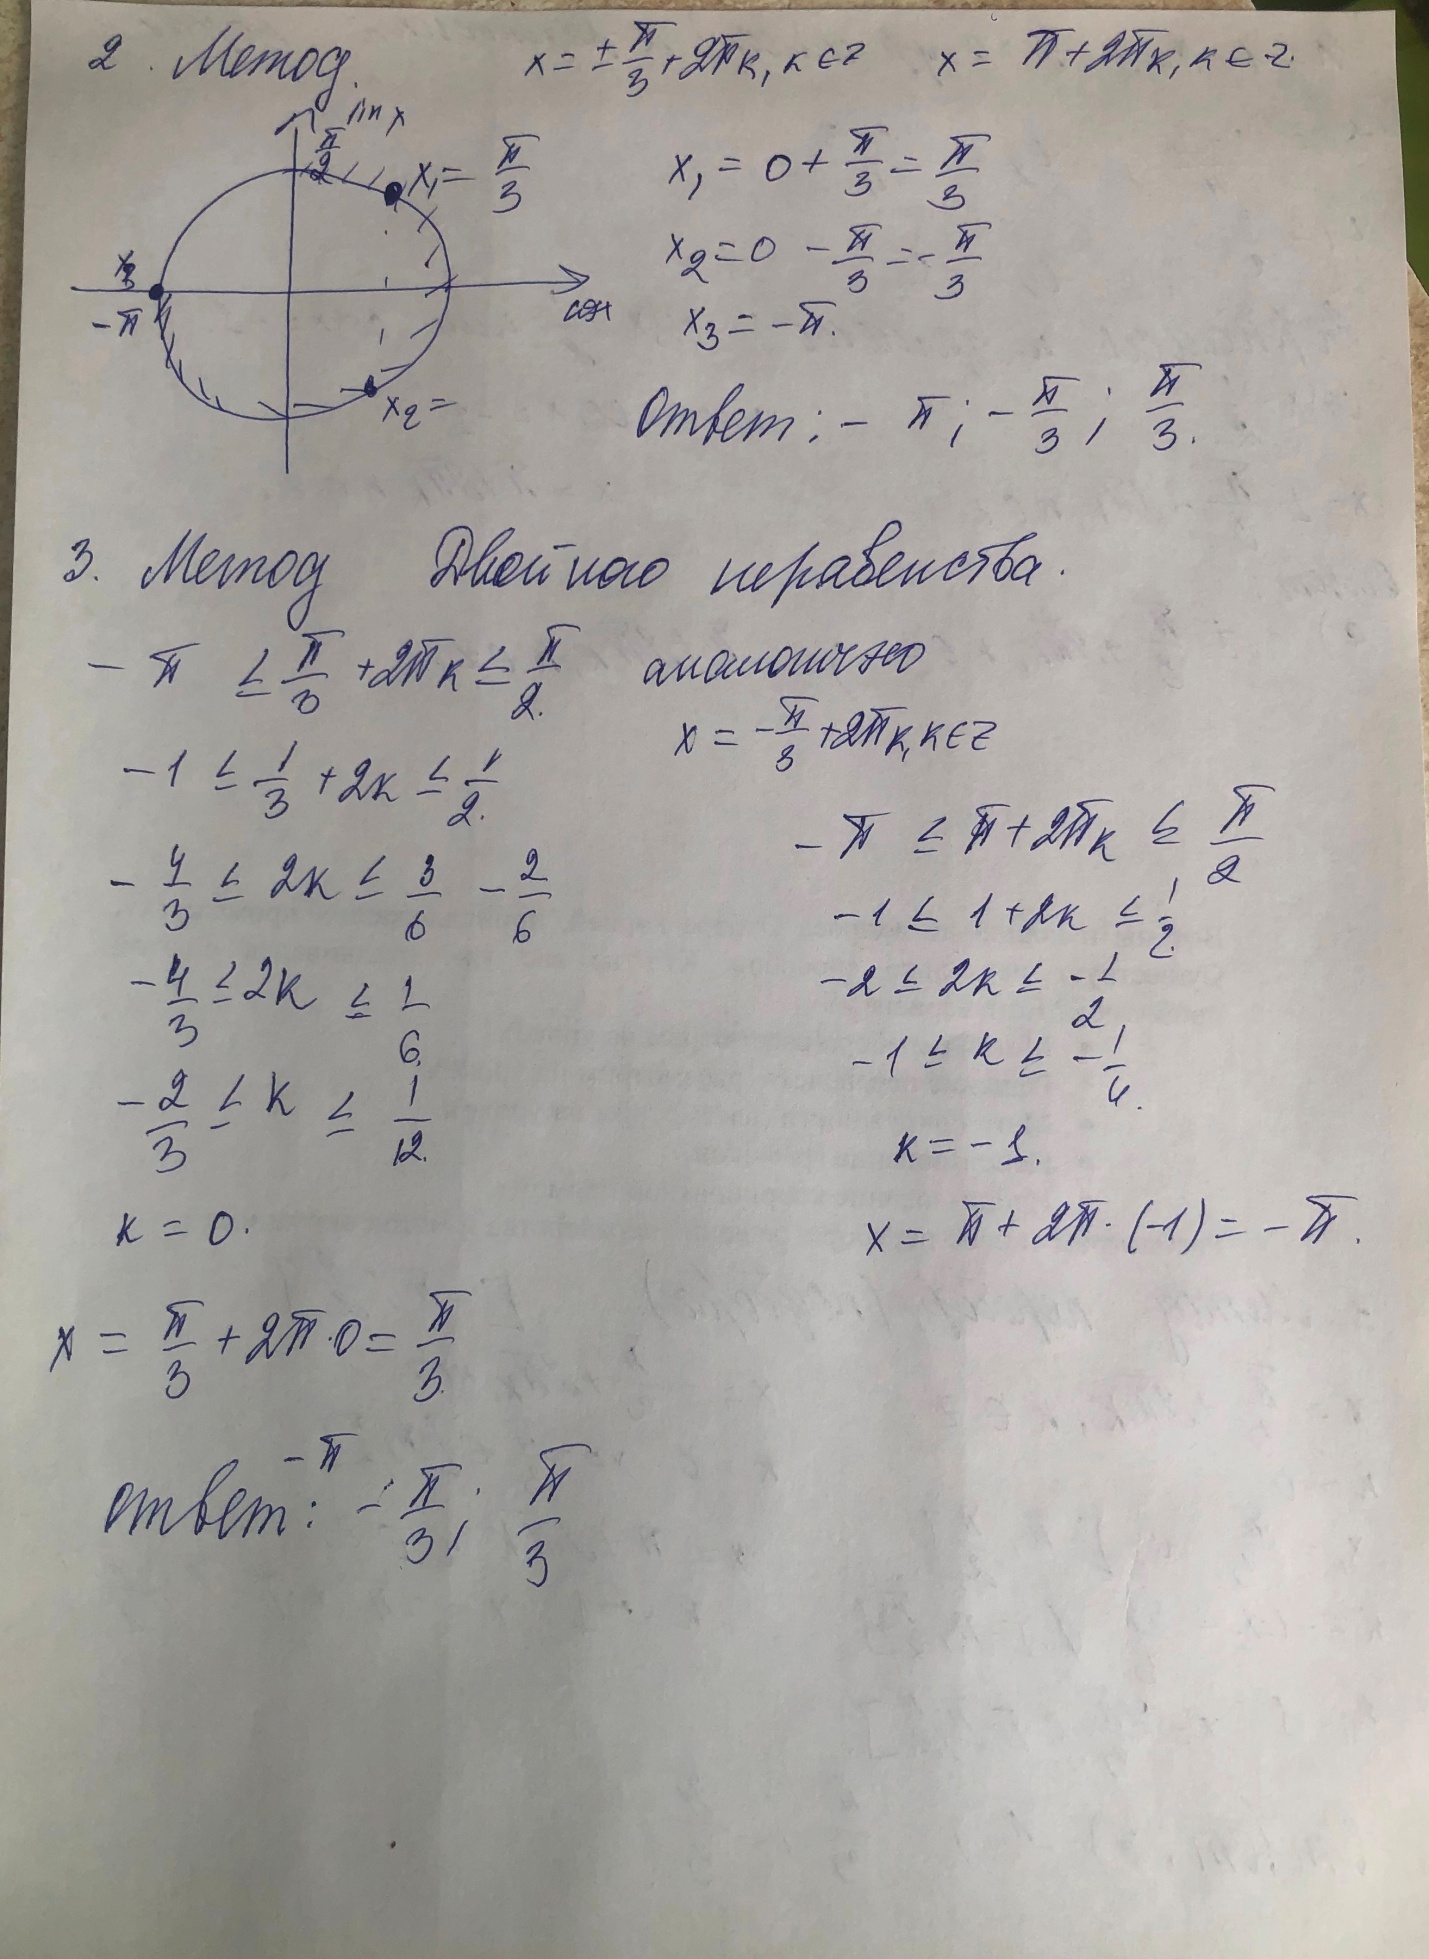 2. Метод. x = ± π/3 + 2πк, к ∈ z x = π + 2πк, к ∈ z.
sin x
π/2
x₁ = π/3
x₃
-π
cosx
x₂ =
x₁ = 0 + π/3 = π/3
x₂ = 0 - π/3 = - π/3
x₃ = -π.
Ответ: - π; - π/3; π/3.
3. Метод Двойного неравенства.
- π ≤ π/3 + 2πк ≤ π/2.
-1 ≤ 1/3 + 2к ≤ 1/2.
- 4/3 ≤ 2к ≤ 3/6 - 2/6
- 4/3 ≤ 2к ≤ 1/6.
- 2/3 ≤ к ≤ 1/12.
к = 0.
x = π/3 + 2π·0 = π/3.
аналогично
x = - π/3 + 2πк, к ∈ z
- π ≤ π + 2πк ≤ π/2
-1 ≤ 1 + 2к ≤ 1/2.
-2 ≤ 2к ≤ - 1/2
-1 ≤ к ≤ - 1/4.
к = -1.
x = π + 2π·(-1) = - π.
Ответ: -π - π/3; π/3